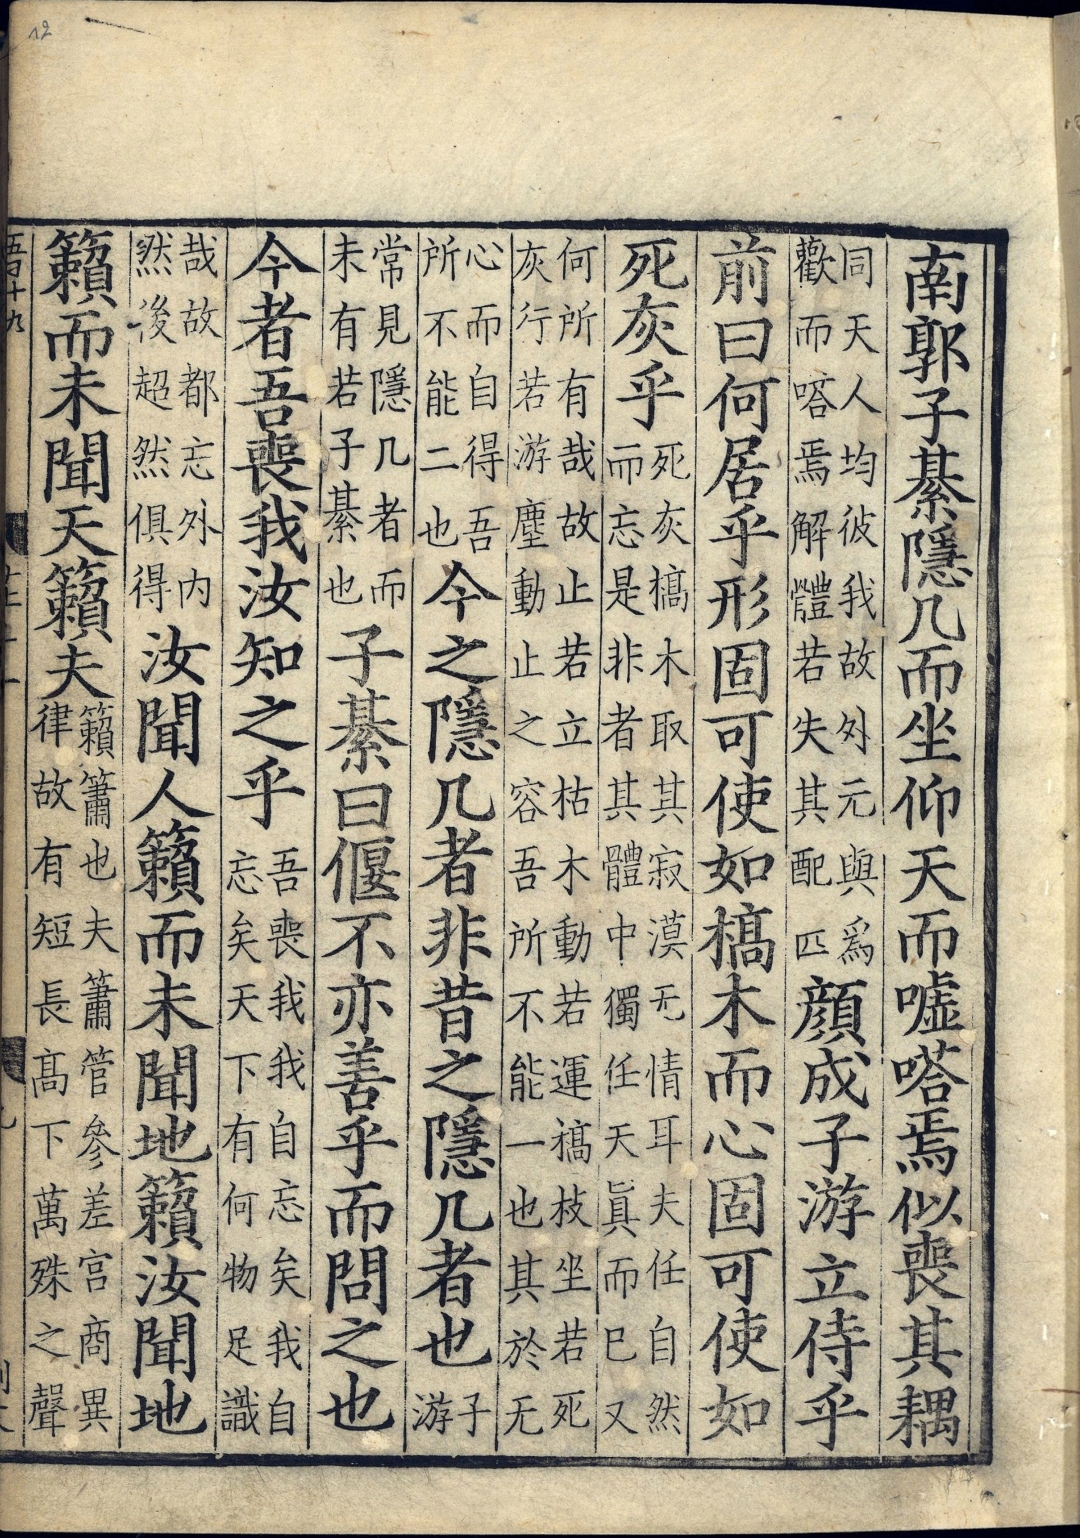 南郭子綦隱几而坐仰天而噓嗒焉似喪其耦
同天人均彼我故外元與爲
歡而嗒焉解體若失其配匹
顔成子游立侍乎
前曰何居乎形固可使如槁木而心固可使如
死灰乎
死灰槁木取其寂漠无情耳夫任自然
而忘是非者其體中獨任天眞而巳又
何所有哉故止若立枯木動若運槁枝坐若死
灰行若游塵動止之容吾所不能一也其於无
心而自得吾
所不能二也
今之隱几者非昔之隱几者也
子
游
常見隱几者而
未有若子綦也
子綦曰偃不亦善乎而問之也
今者吾喪我汝知之乎
吾喪我我自忘矣我自
忘矣天下有何物足識
哉故都忘外内
然後超然俱得
汝聞人籟而未聞地籟汝聞地
籟而未聞天籟夫
籟簫也夫簫管參差宫商異
律故有短長髙下萬殊之聲
12